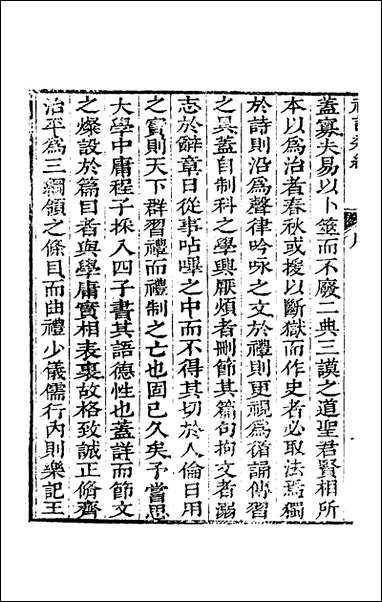 蓋寡夫易以卜筮而不廢二典三謨之道聖君賢相所
本以為治者春秋或援以斷獄而作史者必取法焉獨
於詩則沿為聲律吟咏之文於禮則更視為循誦傳習
之具蓋自制科之學興厭煩者刪節其篇句拘文者溺
志於辭章日從事呫嗶之中而不得其切於人倫日用
之實則天下群習禮而禮制之亡也固已久矣予嘗思
大學中庸程子採入四子書其語德性也蓋詳而節文
之燦設於篇目者與學庸實相表裏故格致誠正脩齊
治平為三綱領之條目而曲禮少儀儒行內則樂記王